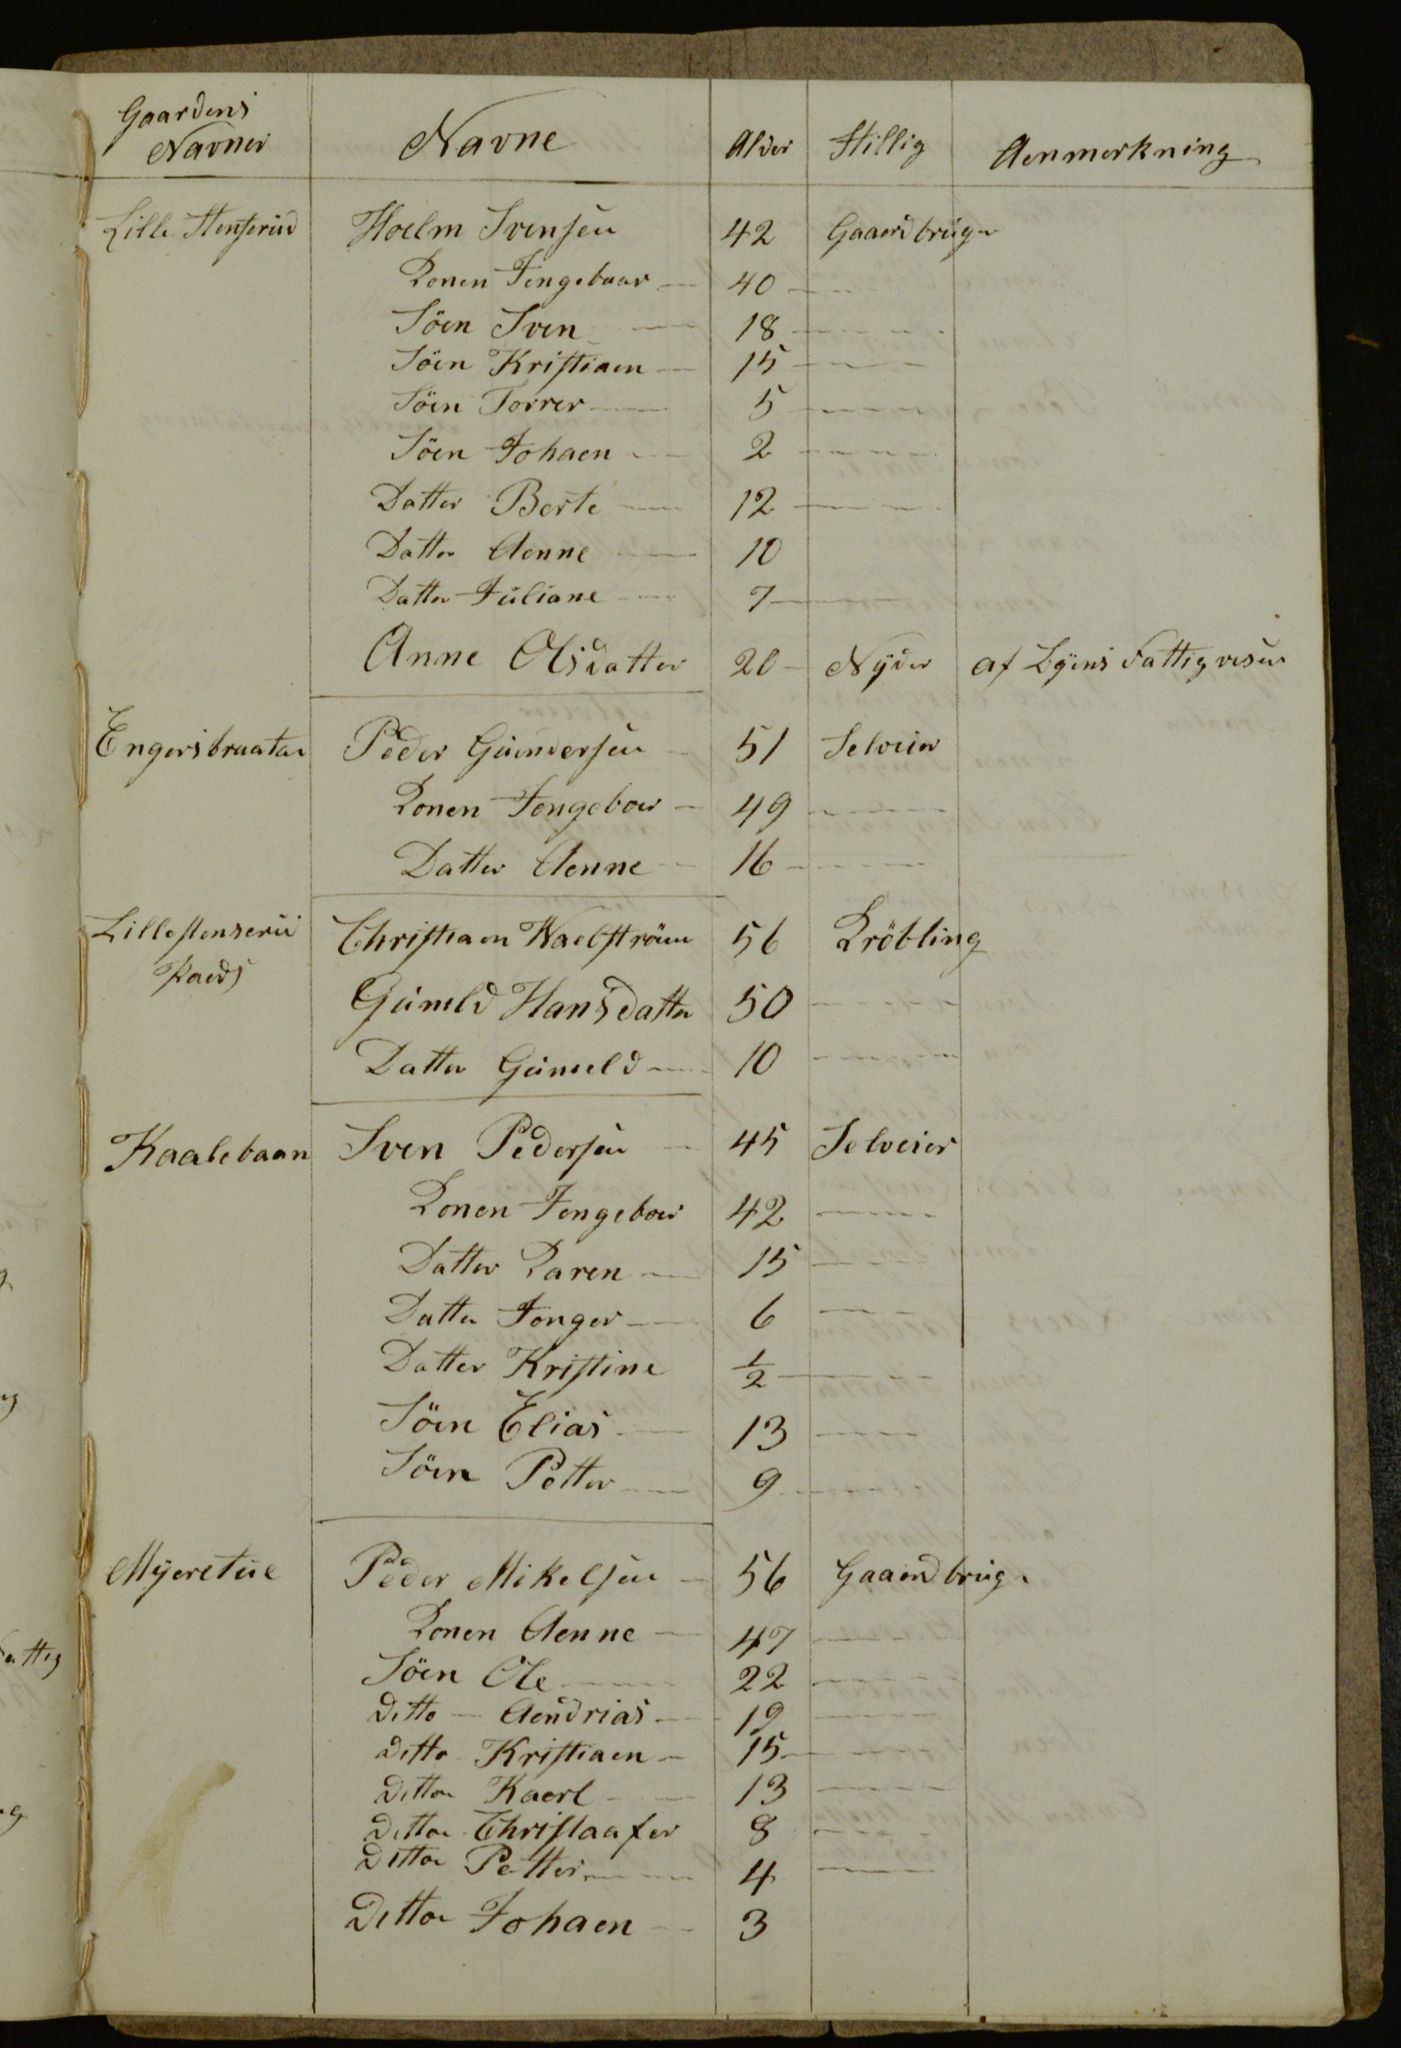 Gaardens
Navner Navne Alder Stillig Aenmerkning
Lille Stenserud Hoelm Svensen 42 Gaaerdbrug
Konen Jengebaar 40
Söen Sven 18
Söen Kristiaen 15
Söen Torrer 5
Söen Johaen 2
Datter Berte 12
Datter Aenne 10
Datter Juliane 7
Anne Olsdatter 20 Nÿder af Bÿens Fattigvesen
Engersbraatan Peder Gundersen 51 Selveier
Konen Jengeboer 49
Datter Aenne 16
Lillestenserud Christiaen Waelström 56 Kröbling
Plads Guneld Hansdatter 50
Datter Guneld 10
Kaalebaan Sven Pedersen 45 Selveier
Konen Jengeboer 42
Datter Karen 15
Datter Jenger 6
Datter Kristine ½
Söen Elias 13
Söen Petter 9
Mÿeretue Peder Mikelsen 56 Gaaerdbrug
Konen Aenne 47
Söen Ole 22
Ditto Aendrias 19
Ditto Kristiaen 15
Ditto Kaerl 13
Ditto Christaafer 8
Ditto Petter 4
Ditto Johaen 3